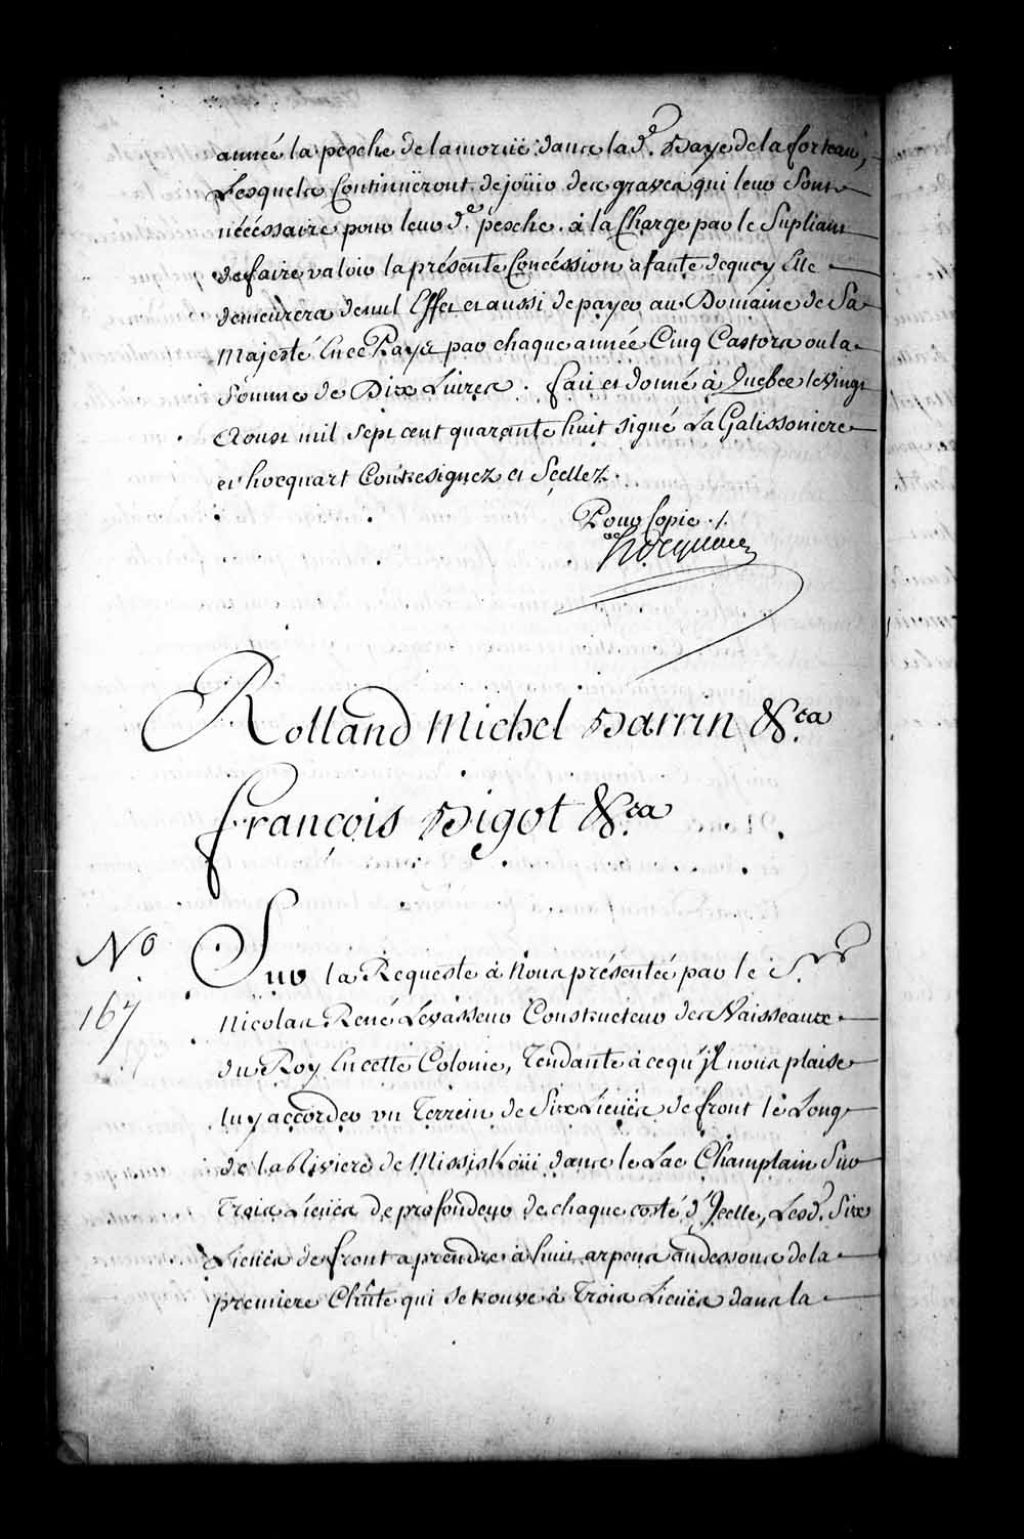 année la pesche de la moruë dans lad.e Baye de la forteau,
Lesquels Continüeront de joüir des graves qui leur Sont
nécéssaire pour leur d.e pesche. à la Charge par le Supliant
de faire valoir la présente Concéssion a faute dequoy Elle
demeurera de nul Effet et aussi de payer au Domaine de Sa
Majesté En ce Pays par chaque année Cinq Castors ou la
Somme de Dix Livres. fait et donné à Quebec le Vingt
Aoust mil sept cent quarante huit signé La Galissoniere
et hocquart Contresignez et Scellez.
Pour Copie ./.
hocquart
Rolland Michel Barrin &.ca
françois Bigot &.ca
N.o
167
Sur la Requeste à Nous présentée par le S.r
Nicolas René Levasseur Constructeur des Vaisseaux
du Roy En cette Colonie, Tendante à ce qu'jl nous plaise
luy accorder un Terrein de Six Lieües de front le Long
de la Riviere de Missiskoüi dans le Lac Champlain Sur
Trois Lieües de profondeur de chaque costé d'Jcelle, Lesd. Six
Lieües de front a prendre à huit arpens audessous de la
premiere Chûte qui se trouve à Trois Lieües dans la